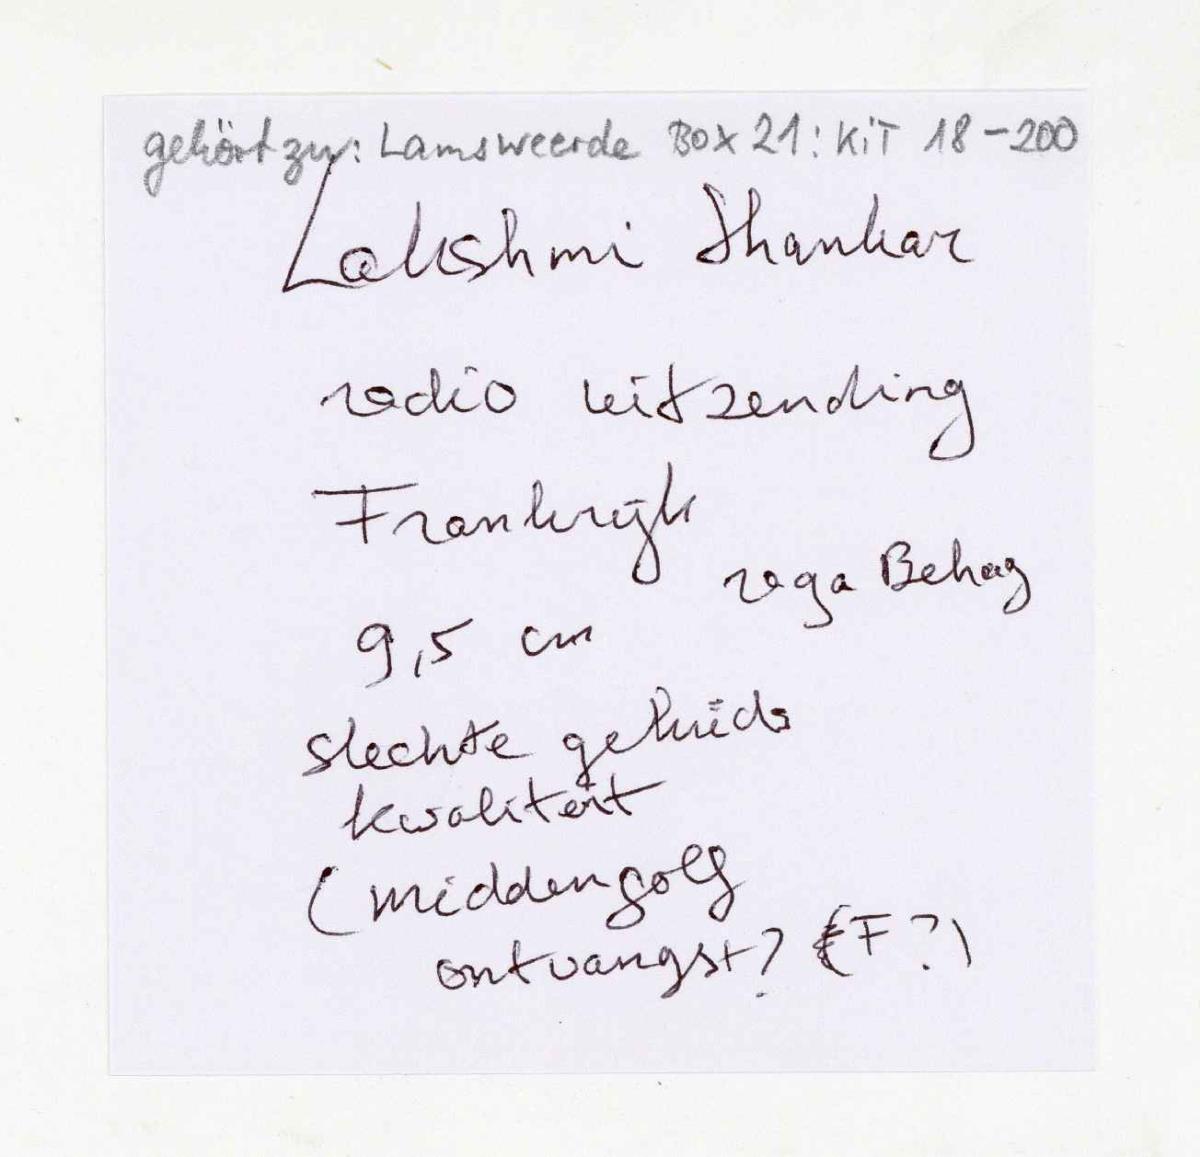 gehört zu: Lamsweerde Box 21: KiT 18-200
Lakshmi Shankar
radio uitzending
Frankrijk
raga Behag
9,5 cm
slechte geluids
kwaliteit
(middengolf
ontvangst? (F?)